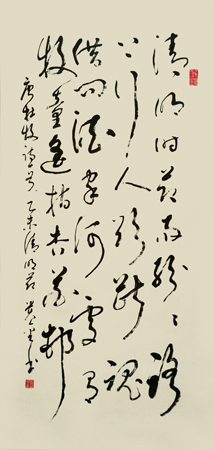 清明时节雨纷纷路
上行人欲断魂
借问酒家何处有
牧童遥指杏花村
唐杜牧诗 乙未清明节 书